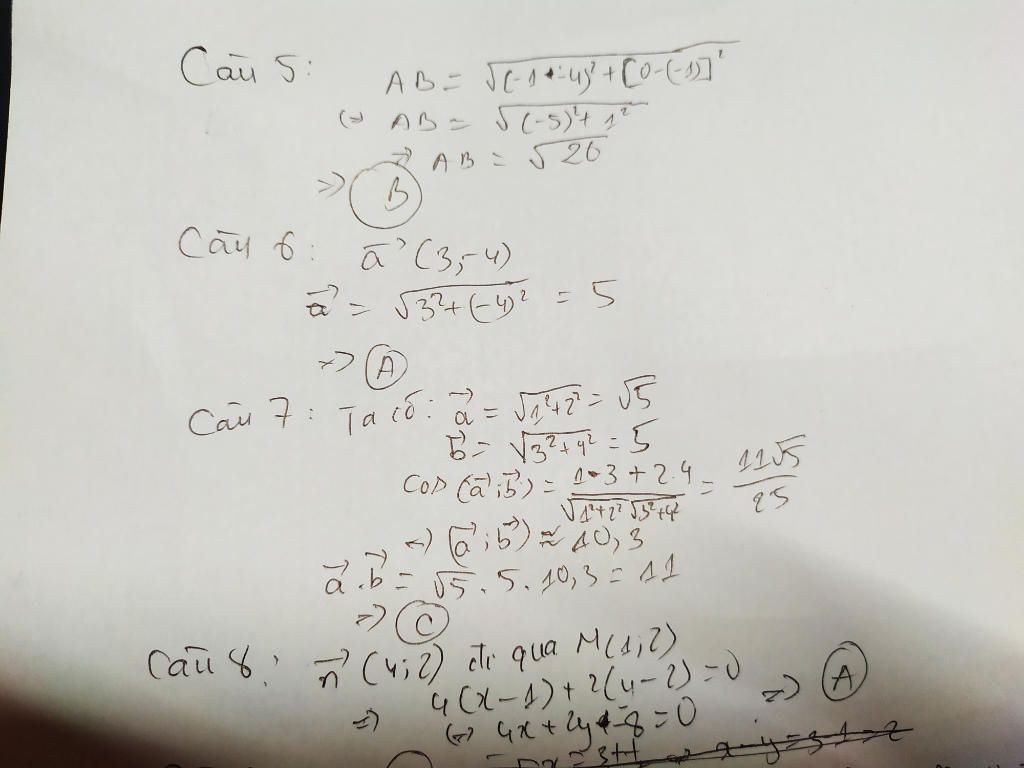 Câu 5: AB = √(-1-4)² + [0-(-1)]²
(=) AB = √(-5)² + 1²
=> AB = √26
=> B
Câu 6: a⃗ (3,-4)
a⃗ = √3²+(-4)² = 5
=> A
Câu 7: Ta có: a⃗ = √1²+2² = √5
b⃗ = √3²+4² = 5
cos (a⃗;b⃗) = 1.3 + 2.4 / √1²+2² √3²+4² = 11√5 / 25
(=) (a⃗;b⃗) ≈ 10,3
a⃗.b⃗ = √5 . 5 . 10,3 = 11
=> C
Câu 8: n⃗ (4;2) đi qua M(1;2)
4(x-1) + 2(y-2) = 0 => A
=> (=) 4x + 2y - 8 = 0